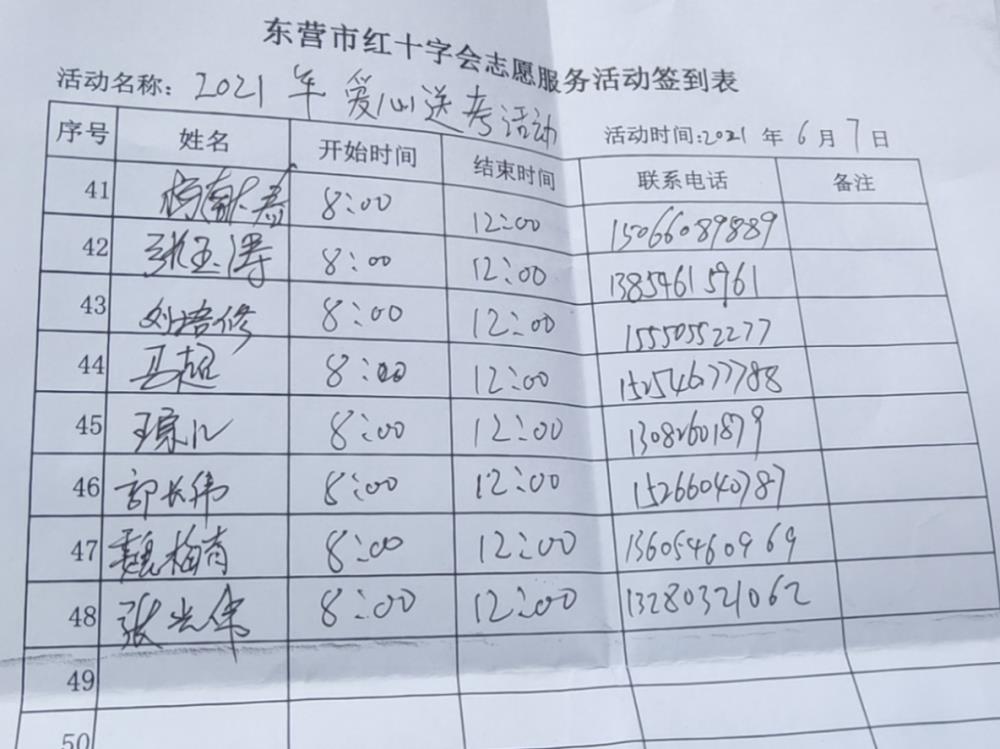 东营市红十字会志愿服务活动签到表
活动名称：2021年爱心送考活动 活动时间:2021年6月7日
序号 姓名 开始时间 结束时间 联系电话 备注
41 8:00 12:00 15066089889
42 张玉涛 8:00 12:00 13854615961
43 刘培修 8:00 12:00 15550552277
44 马超 8:00 12:00 15254677788
45 8:00 12:00 13082601879
46 郭长伟 8:00 12:00 15266040787
47 魏梅青 8:00 12:00 13605460969
48 张光伟 8:00 12:00 13280321062
49
50